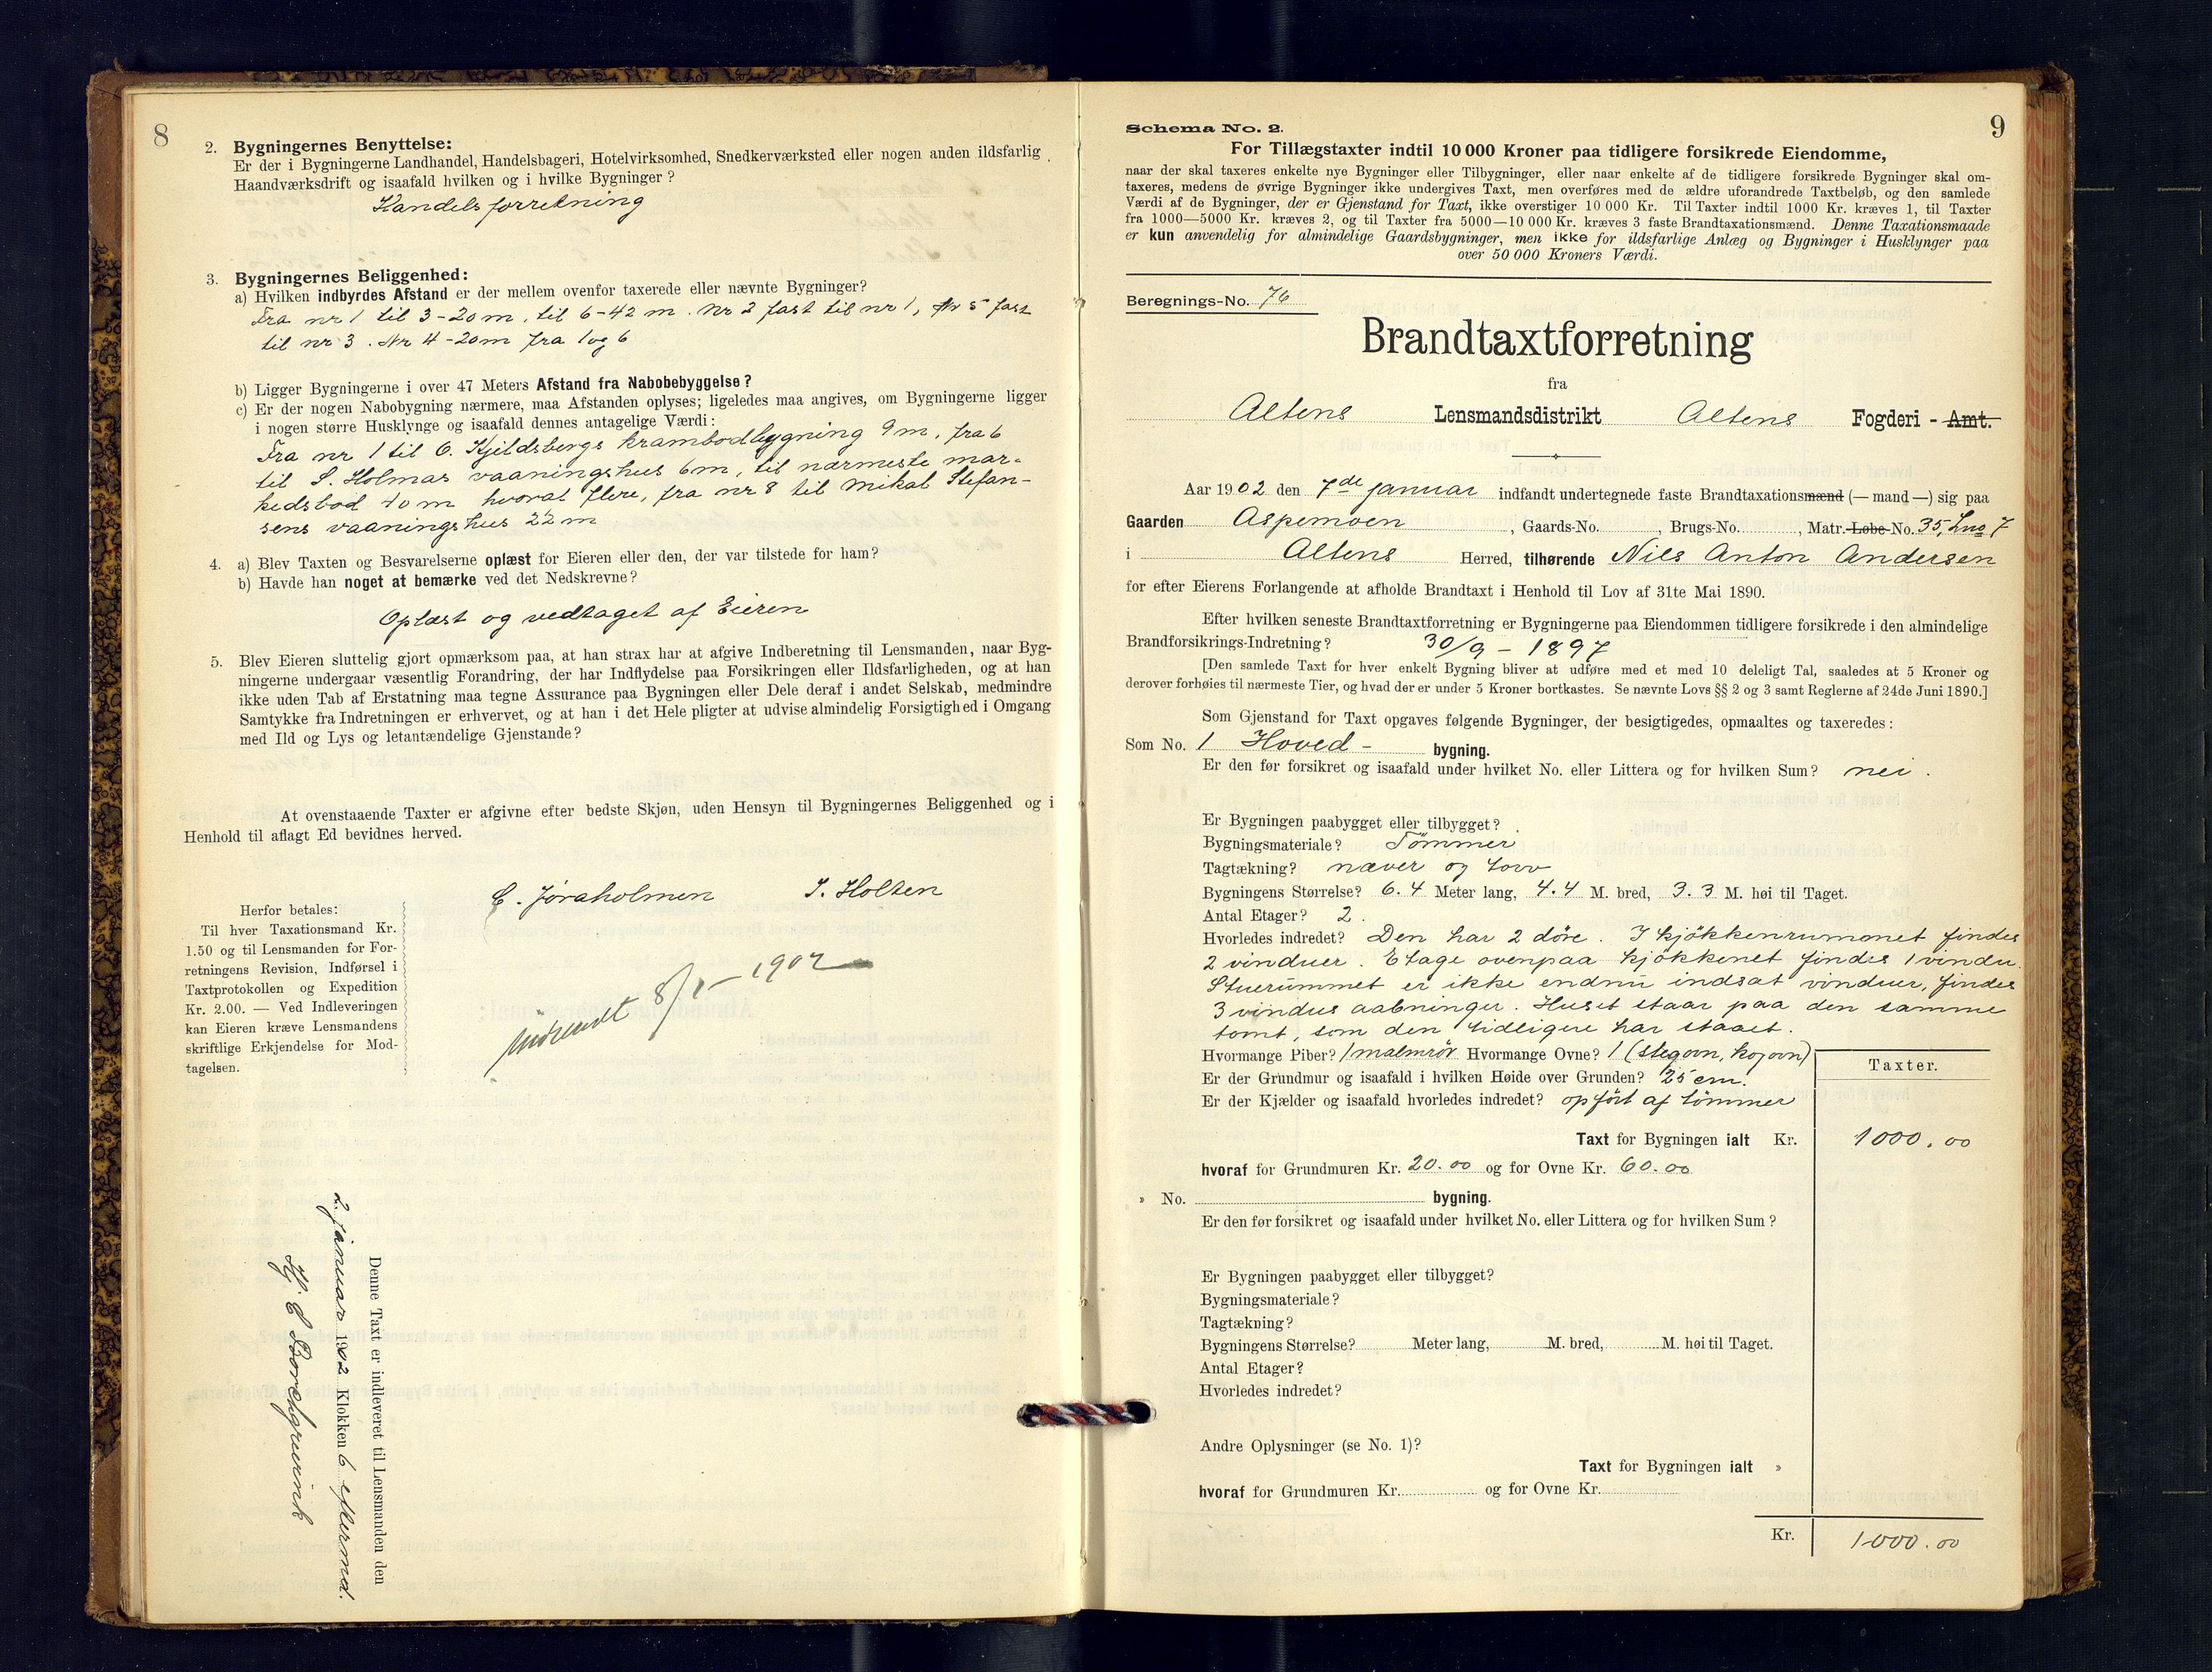 8
2. Bygningernes Benyttelse:
Er der i Bygningerne Landhandel, Handelsbageri, Hotelvirksomhed, Snedkerværksted eller nogen anden ildsfarlig
Haandværksdrift og isaafald hvilken og i hvilke Bygninger?
Handelsforretning
3. Bygningernes Beliggenhed:
a) Hvilken indbyrdes Afstand er der mellem ovenfor taxerede eller nævnte Bygninger?
Fra nr 1 til 3-20 m, til 6-42 m. Nr 2 fast til nr 1, Nr 5 fast
til nr 3. Nr 4-20m fra 1 og 6
b) Ligger Bygningerne i over 47 Meters Afstand fra Nabobebyggelse?
c) Er der nogen Nabobygning nærmere, maa Afstanden oplyses; ligeledes maa angives, om Bygningerne ligger
i nogen større Husklynge og isaafald dennes antagelige Værdi:
Fra nr 1 til O. Kjeldsbergs krambodbygning 9 m, fra 6
til S. Holmas vaaningshus 6 m, til nærmeste mar-
kedsbod 40 m hvoraf flere, fra nr 8 til Mikal Stefan-
sens vaaningshus 22 m
4. a) Blev Taxten og Besvarelserne oplæst for Eieren eller den, der var tilstede for ham?
b) Havde han noget at bemærke ved det Nedskrevne?
Oplæst og vedtaget af Eieren
5. Blev Eieren sluttelig gjort opmærksom paa, at han strax har at afgive Indberetning til Lensmanden, naar Byg-
ningerne undergaar væsentlig Forandring, der har Indflydelse paa Forsikringen eller Ildsfarligheden, og at han
ikke uden Tab af Erstatning maa tegne Assurance paa Bygningen eller Dele deraf i andet Selskab, medmindre
Samtykke fra Indretningen er erhvervet, og at han i det Hele pligter at udvise almindelig Forsigtighed i Omgang
med Ild og Lys og letantændelige Gjenstande?
At ovenstaaende Taxter er afgivne efter bedste Skjøn, uden Hensyn til Bygningernes Beliggenhed og i
Henhold til aflagt Ed bevidnes herved.
C. Jøraholmen J. Holten
Herfor betales:
Til hver Taxationsmand Kr.
1.50 og til Lensmanden for For-
retningens Revision, Indførsel i
Taxtprotokollen og Expedition
Kr. 2.00. — Ved Indleveringen
kan Eieren kræve Lensmandens
skriftlige Erkjendelse for Mod-
tagelsen.
Indsendt 8/1-1902
Denne Taxt er indleveret til Lensmanden den
2. januar 1902 Klokken 6 eftermd.
9
Schema No. 2.
For Tillægstaxter indtil 10 000 Kroner paa tidligere forsikrede Eiendomme,
naar der skal taxeres enkelte nye Bygninger eller Tilbygninger, eller naar enkelte af de tidligere forsikrede Bygninger skal om-
taxeres, medens de øvrige Bygninger ikke undergives Taxt, men overføres med de ældre uforandrede Taxtbeløb, og den samlede
Værdi af de Bygninger, der er Gjenstand for Taxt, ikke overstiger 10 000 Kr. Til Taxter indtil 1000 Kr. kræves 1, til Taxter
fra 1000—5000 Kr. kræves 2, og til Taxter fra 5000—10 000 Kr. kræves 3 faste Brandtaxationsmænd. Denne Taxationsmaade
er kun anvendelig for almindelige Gaardsbygninger, men ikke for ildsfarlige Anlæg og Bygninger i Husklynger paa
over 50 000 Kroners Værdi.
Beregnings-No. 76
Brandtaxtforretning
fra
Altens Lensmandsdistrikt Altens Fogderi - Amt.
Aar 1902 den 7de januar indfandt undertegnede faste Brandtaxationsmænd (— mand —) sig paa
Gaarden Aspemoen, Gaards-No. , Brugs-No. , Matr.-Løbe-No. 35, Lno 7
i Altens Herred, tilhørende Nils Anton Andersen
for efter Eierens Forlangende at afholde Brandtaxt i Henhold til Lov af 31te Mai 1890.
Efter hvilken seneste Brandtaxtforretning er Bygningerne paa Eiendommen tidligere forsikrede i den almindelige
Brandforsikrings-Indretning? 30/9 - 1897
[Den samlede Taxt for hver enkelt Bygning bliver at udføre med et med 10 deleligt Tal, saaledes at 5 Kroner og
derover forhøies til nærmeste Tier, og hvad der er under 5 Kroner bortkastes. Se nævnte Lovs §§ 2 og 3 samt Reglerne af 24de Juni 1890.]
Som Gjenstand for Taxt opgaves følgende Bygninger, der besigtigedes, opmaaltes og taxeredes:
Som No. 1 Hoved- bygning.
Er den før forsikret og isaafald under hvilket No. eller Littera og for hvilken Sum? nei.
Er Bygningen paabygget eller tilbygget?
Bygningsmateriale? Tømmer
Tagtækning? næver og torv
Bygningens Størrelse? 6.4 Meter lang, 4.4 M. bred, 3.3 M. høi til Taget.
Antal Etager? 2.
Hvorledes indredet? Den har 2 døre. I kjøkkenrummet findes
2 vinduer. Etage ovenpaa kjøkkenet findes 1 vindu.
Stuerummet er ikke endnu indsat vinduer, findes
3 vindus aabninger. Huset staar paa den samme
tomt, som den tidligere har staaet.
Hvormange Piber? 1 malmrør Hvormange Ovne? 1 (stegovn, kogovn)
Er der Grundmur og isaafald i hvilken Høide over Grunden? 25 cm.
Er der Kjælder og isaafald hvorledes indredet? opført af tømmer
Taxter.
Taxt for Bygningen ialt Kr. 1000.00
hvoraf for Grundmuren Kr. 20.00 og for Ovne Kr. 60.00
» No. bygning.
Er den før forsikret og isaafald under hvilket No. eller Littera og for hvilken Sum?
Er Bygningen paabygget eller tilbygget?
Bygningsmateriale?
Tagtækning?
Bygningens Størrelse? Meter lang, M. bred, M. høi til Taget.
Antal Etager?
Hvorledes indredet?
Andre Oplysninger (se No. 1)?
Taxt for Bygningen ialt »
hvoraf for Grundmuren Kr. og for Ovne Kr.
Kr. 1000.00